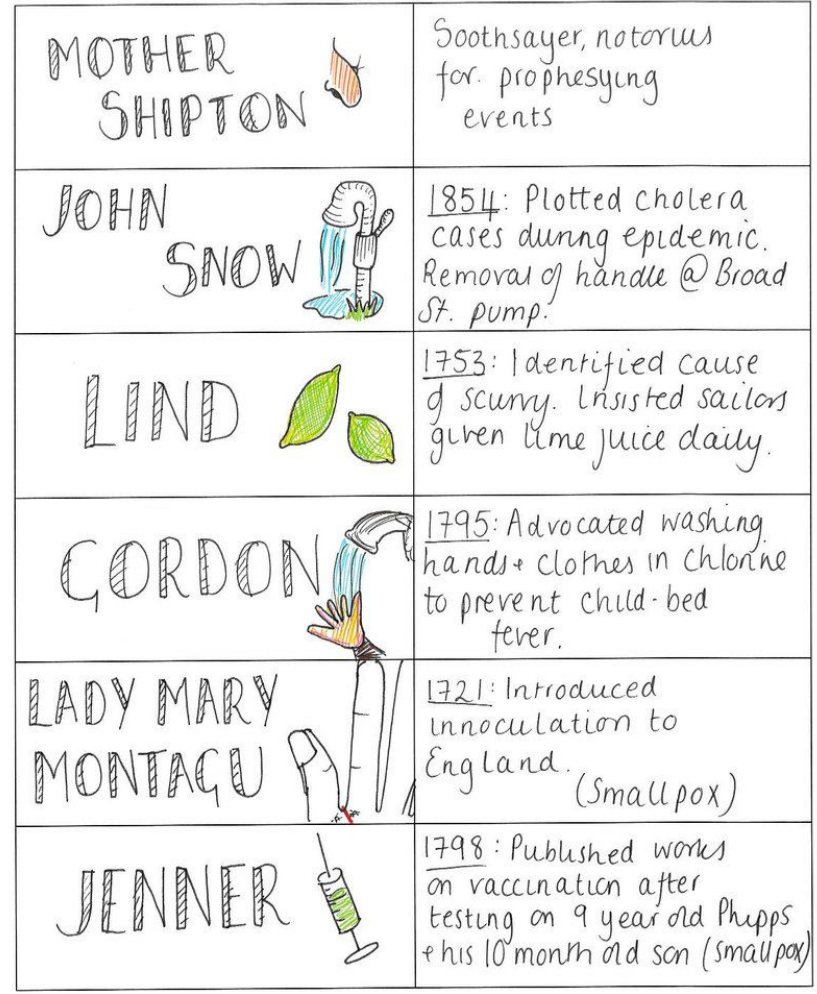 MOTHER
SHIPTON
Soothsayer, notorius
for prophesying
events
JOHN
SNOW
1854: Plotted cholera
cases during epidemic.
Removal of handle @ Broad
St. pump.
LIND
1753: Identified cause
of scurvy. Insisted sailors
given lime juice daily.
GORDON
1795: Advocated washing
hands + clothes in chlorine
to prevent child-bed
fever.
LADY MARY
MONTAGU
1721: Introduced
innoculation to
England.
(Smallpox)
JENNER
1798: Published works
on vaccination after
testing on 9 year old Phipps
+ his 10 month old son (smallpox)